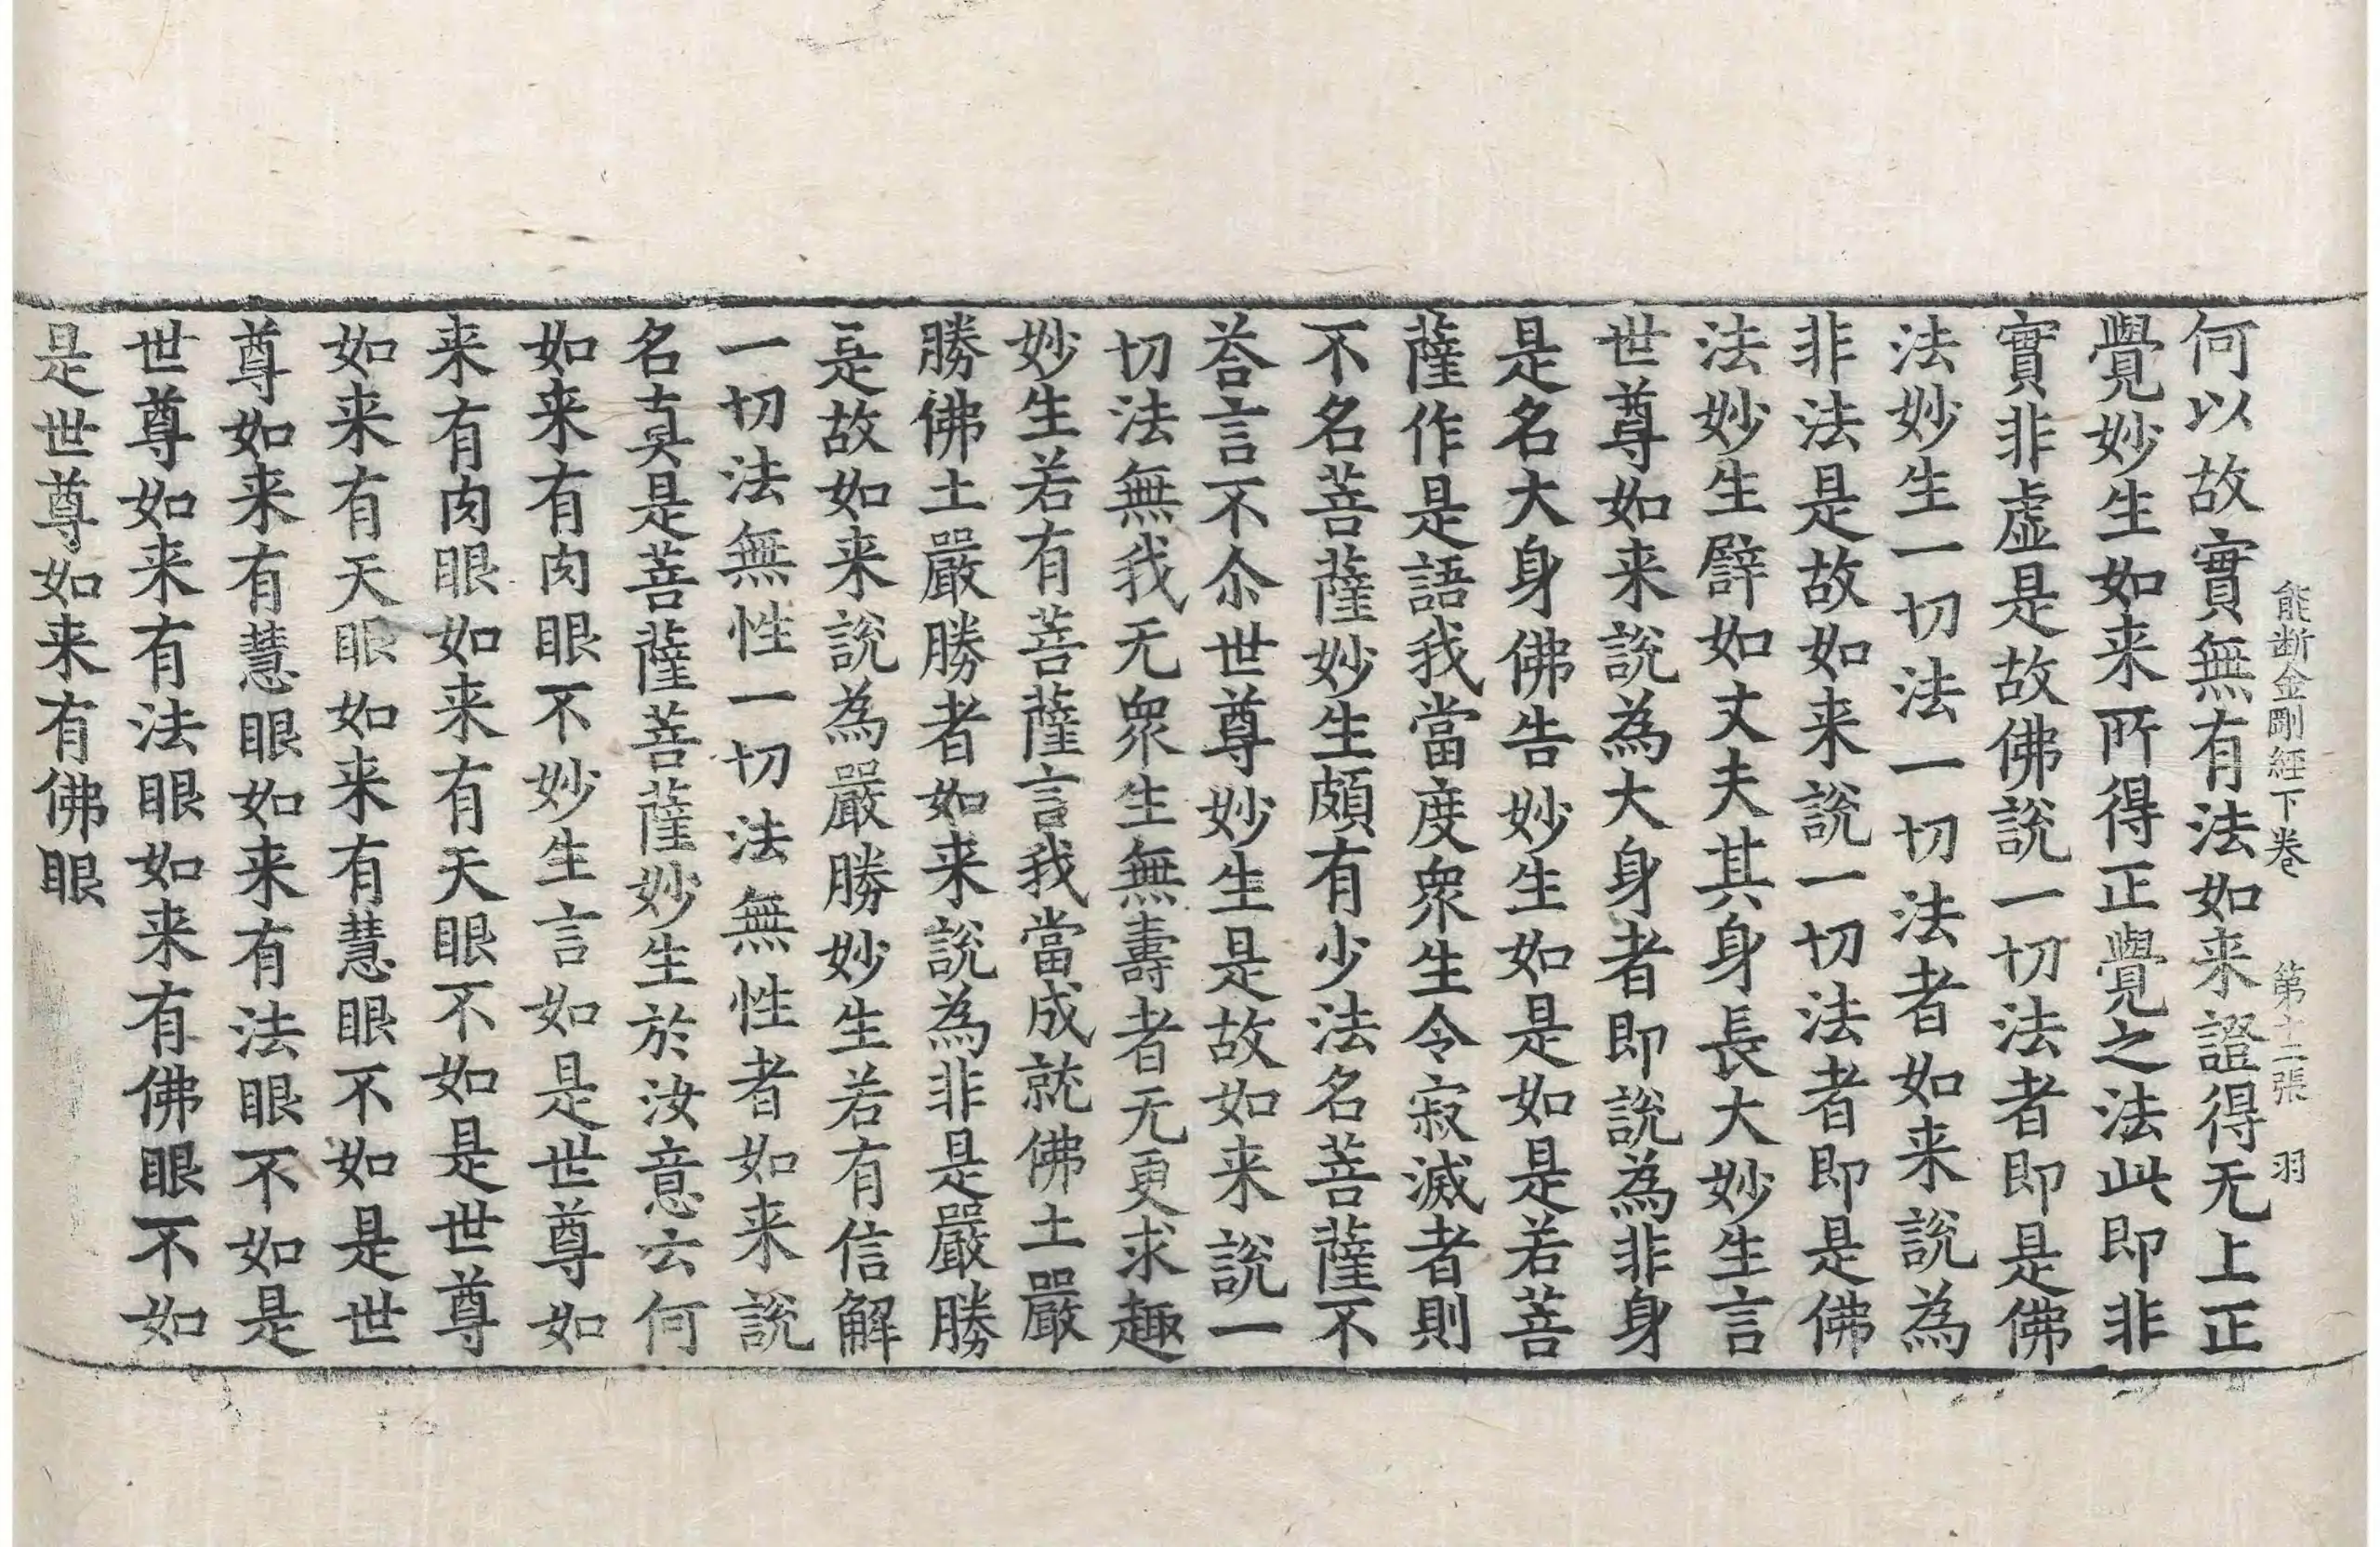 能断金剛經下卷　第十二張　羽
何以故實無有法如来證得无上正
覺妙生如来所得正覺之法此即非
實非虛是故佛說一切法者即是佛
法妙生一切法一切法者如来說為
非法是故如来說一切法者即是佛
法妙生譬如丈夫其身長大妙生言
世尊如来說為大身者即說為非身
是名大身佛告妙生如是如是若菩
薩作是語我當度衆生令寂滅者則
不名菩薩妙生頗有少法名菩薩不
荅言不尒世尊妙生是故如来說一
切法無我无衆生無壽者无更求趣
妙生若有菩薩言我當成就佛土嚴
勝佛土嚴勝者如来說為非是嚴勝
是故如来說為嚴勝妙生若有信解
一切法無性一切法無性者如来說
名真是菩薩菩薩妙生於汝意云何
如来有肉眼不妙生言如是世尊如
来有肉眼如来有天眼不如是世尊
如来有天眼如来有慧眼不如是世
尊如来有慧眼如来有法眼不如是
世尊如来有法眼如来有佛眼不如
是世尊如来有佛眼